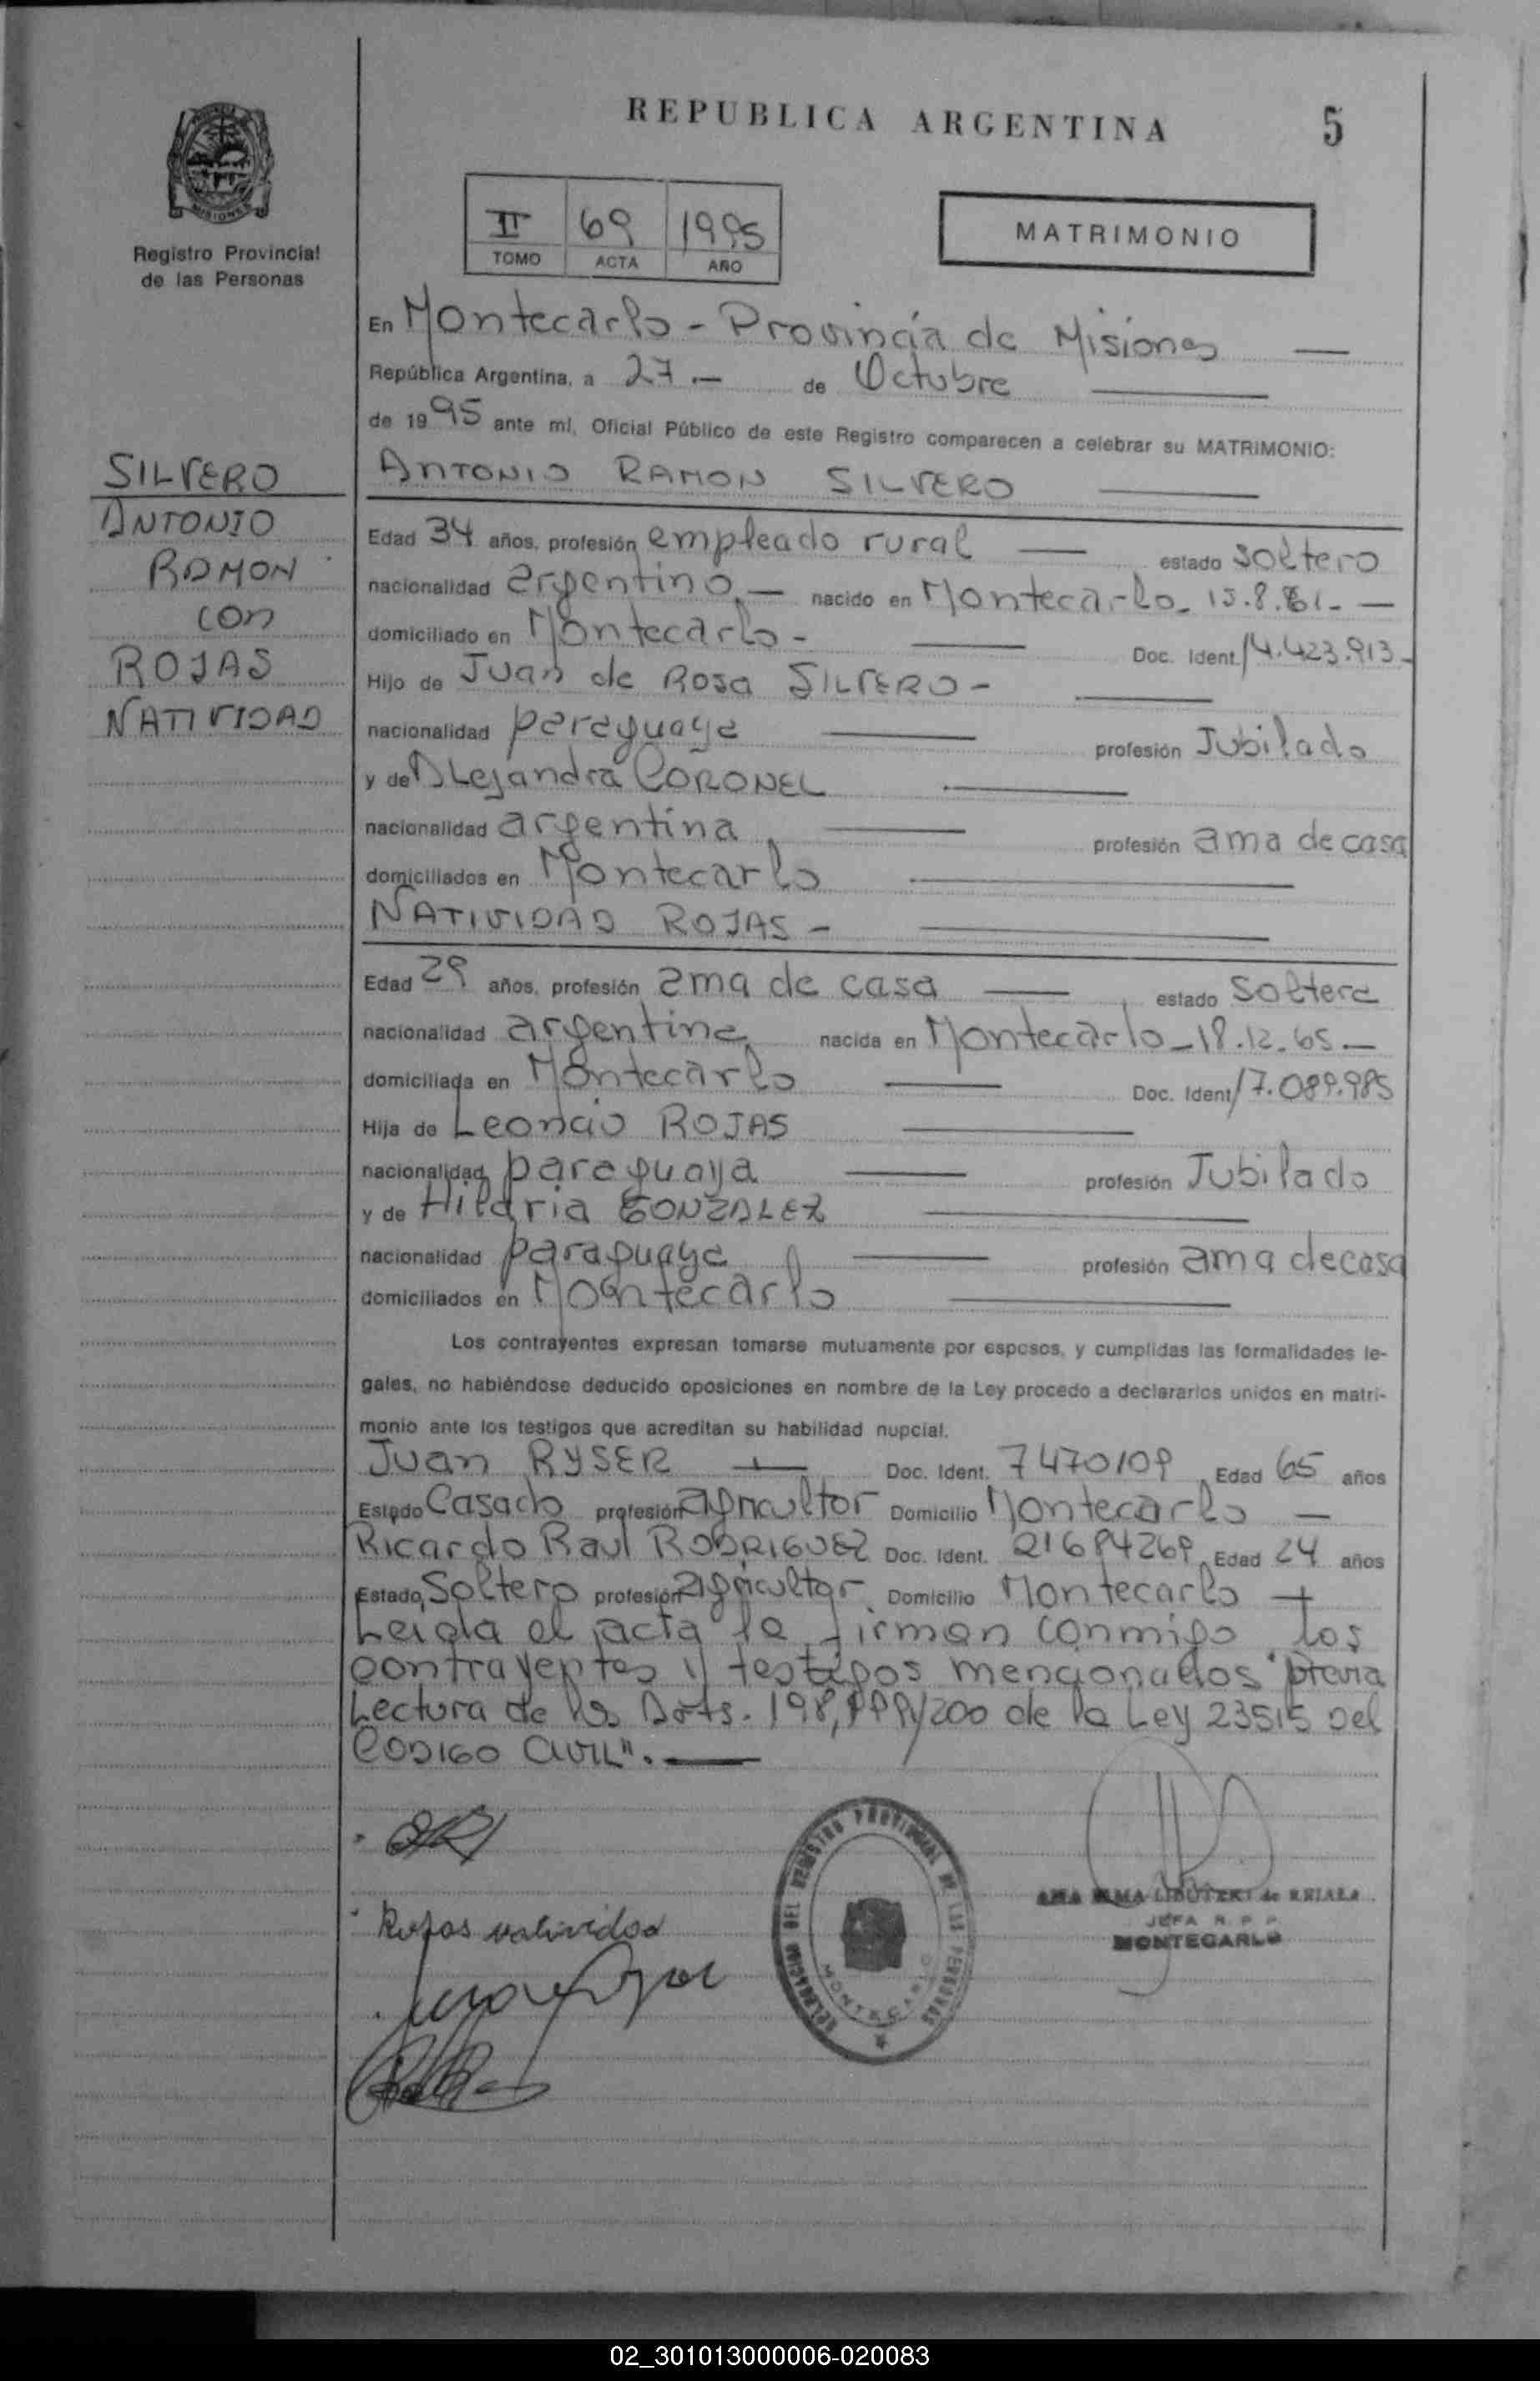 REPUBLICA ARGENTINA
5
MISIONES
Registro Provincial
de las Personas
II 69 1995
TOMO ACTA AÑO
MATRIMONIO
En Montecarlo - Provincia de Misiones
República Argentina, a 27.- de Octubre
de 1995 ante mí, Oficial Público de este Registro comparecen a celebrar su MATRIMONIO:
SILVERO
ANTONIO
RAMON
con
ROJAS
NATIVIDAD
ANTONIO RAMON SILVERO
Edad 34 años, profesión empleado rural estado soltero
nacionalidad argentino.- nacido en Montecarlo. 15.8.61.-
domiciliado en Montecarlo- Doc. Ident. 14.423.913-
Hijo de Juan de Rosa SILVERO-
nacionalidad paraguaya profesión Jubilado
y de ALejandra CORONEL
nacionalidad argentina profesión ama de casa
domiciliados en Montecarlo
NATIVIDAD ROJAS-
Edad 29 años, profesión ama de casa estado Soltera
nacionalidad argentina nacida en Montecarlo-18.12.65.-
domiciliada en Montecarlo Doc. Ident 17.089.985
Hija de Leoncio ROJAS
nacionalidad paraguaya profesión Jubilado
y de Hilaria GONZALEZ
nacionalidad paraguaya profesión ama de casa
domiciliados en Montecarlo
Los contrayentes expresan tomarse mutuamente por esposos, y cumplidas las formalidades le-
gales, no habiéndose deducido oposiciones en nombre de la Ley procedo a declararlos unidos en matri-
monio ante los testigos que acreditan su habilidad nupcial.
Juan RYSER Doc. Ident. 7470109 Edad 65 años
Estado Casado profesión agricultor Domicilio Montecarlo
Ricardo Raul RODRIGUEZ Doc. Ident. 21684269 Edad 24 años
Estado Soltero profesión agricultor Domicilio Montecarlo
Leida el acta la firman conmigo los
contrayentes y testigos mencionados "previa
Lectura de los Arts. 198, 199 y 200 de la Ley 23515 Del
CODIGO CIVIL".
Rojas natividad
DELEGACION DEL REGISTRO PROVINCIAL DE LAS PERSONAS
MONTECARLO
JEFA R. P. P.
MONTECARLO
02_301013000006-020083